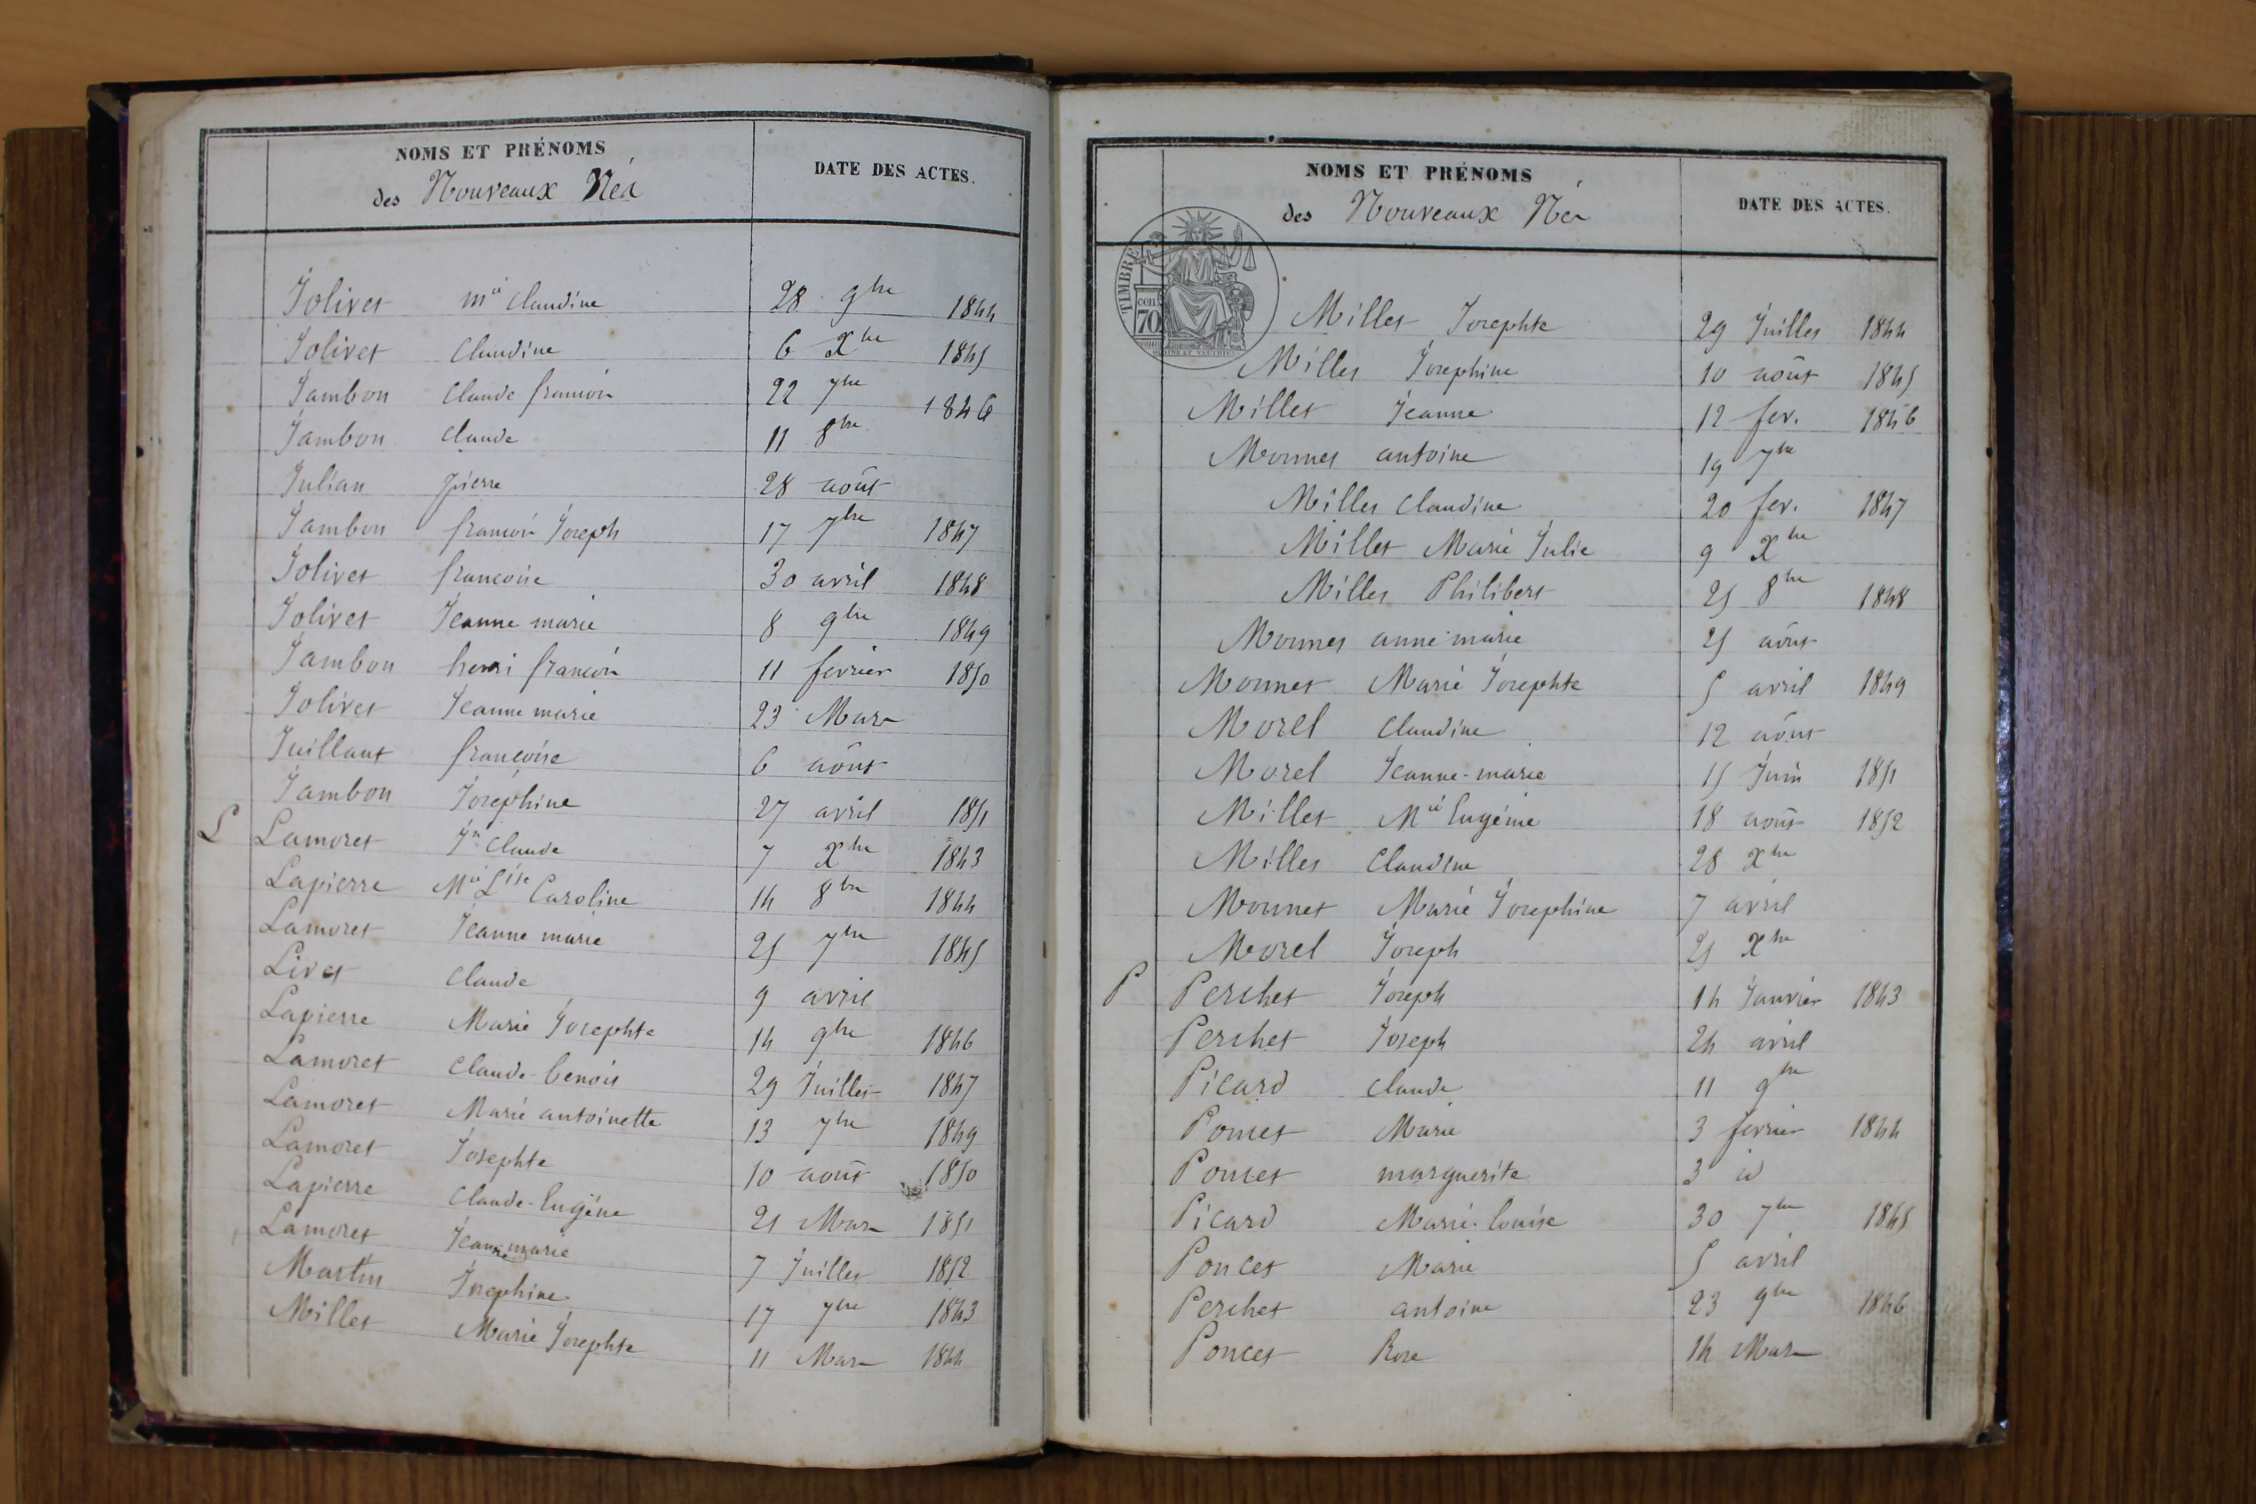 NOMS ET PRÉNOMS
DATE DES ACTES.
des Nouveaux Nés
Jolivet mie Claudine 28 9bre 1844
Jolivet Claudine 6 Xbre 1845
Jambon Claude françois 22 7bre 1846
Jambon Claude 11 8bre
Julian pierre 28 août
Jambon françois Joseph 17 7bre 1847
Jolivet françoise 30 avril 1848
Jolivet Jeanne marie 8 9bre 1849
Jambon henri françois 11 fevrier 1850
Jolivet Jeanne marie 23 Mars
Juillant françoise 6 août
Jambon Joséphine 27 avril 1851
L Lamoret Jn Claude 7 Xbre 1843
Lapierre Mie Lise Caroline 14 8bre 1844
Lamoret Jeanne marie 25 7bre 1845
Livet Claude 9 avril
Lapierre Marie Josephte 14 9bre 1846
Lamoret Claude-benoit 29 Juillet 1847
Lamoret Marie antoinette 13 7bre 1849
Lamoret Josephte 10 août 1850
Lapierre Claude-Eugène 21 Mars 1851
Lamoret Jeanne marie 7 Juillet 1852
Martin Josephine 17 7bre 1843
Millet Marie Josephte 11 Mars 1844
NOMS ET PRÉNOMS
DATE DES ACTES.
des Nouveaux Nés
TIMBRE
cen
70
Millet Josephte 29 Juillet 1844
Millet Josephine 10 août 1845
Millet Jeanne 12 fev. 1846
Monnet antoine 19 7bre
Millet Claudine 20 fev. 1847
Millet Marie Julie 9 Xbre
Millet Philibert 25 8bre 1848
Monnet anne marie 25 août
Monnet Marie Josephte 5 avril 1849
Morel Claudine 12 août
Morel Jeanne-marie 15 Juin 1851
Millet Mie Eugénie 18 août 1852
Millet Claudine 28 Xbre
Monnet Marie Josephine 7 avril
Morel Joseph 25 Xbre
P Perchet Joseph 14 Janvier 1843
Perchet Joseph 24 avril
Picard Claude 11 9bre
Poncet Marie 3 fevrier 1844
Poncet marguerite 3 id
Picard Marie-louise 30 7bre 1845
Poncet Marie 5 avril
Perchet antoine 23 9bre 1846
Poncet Rose 14 Mars